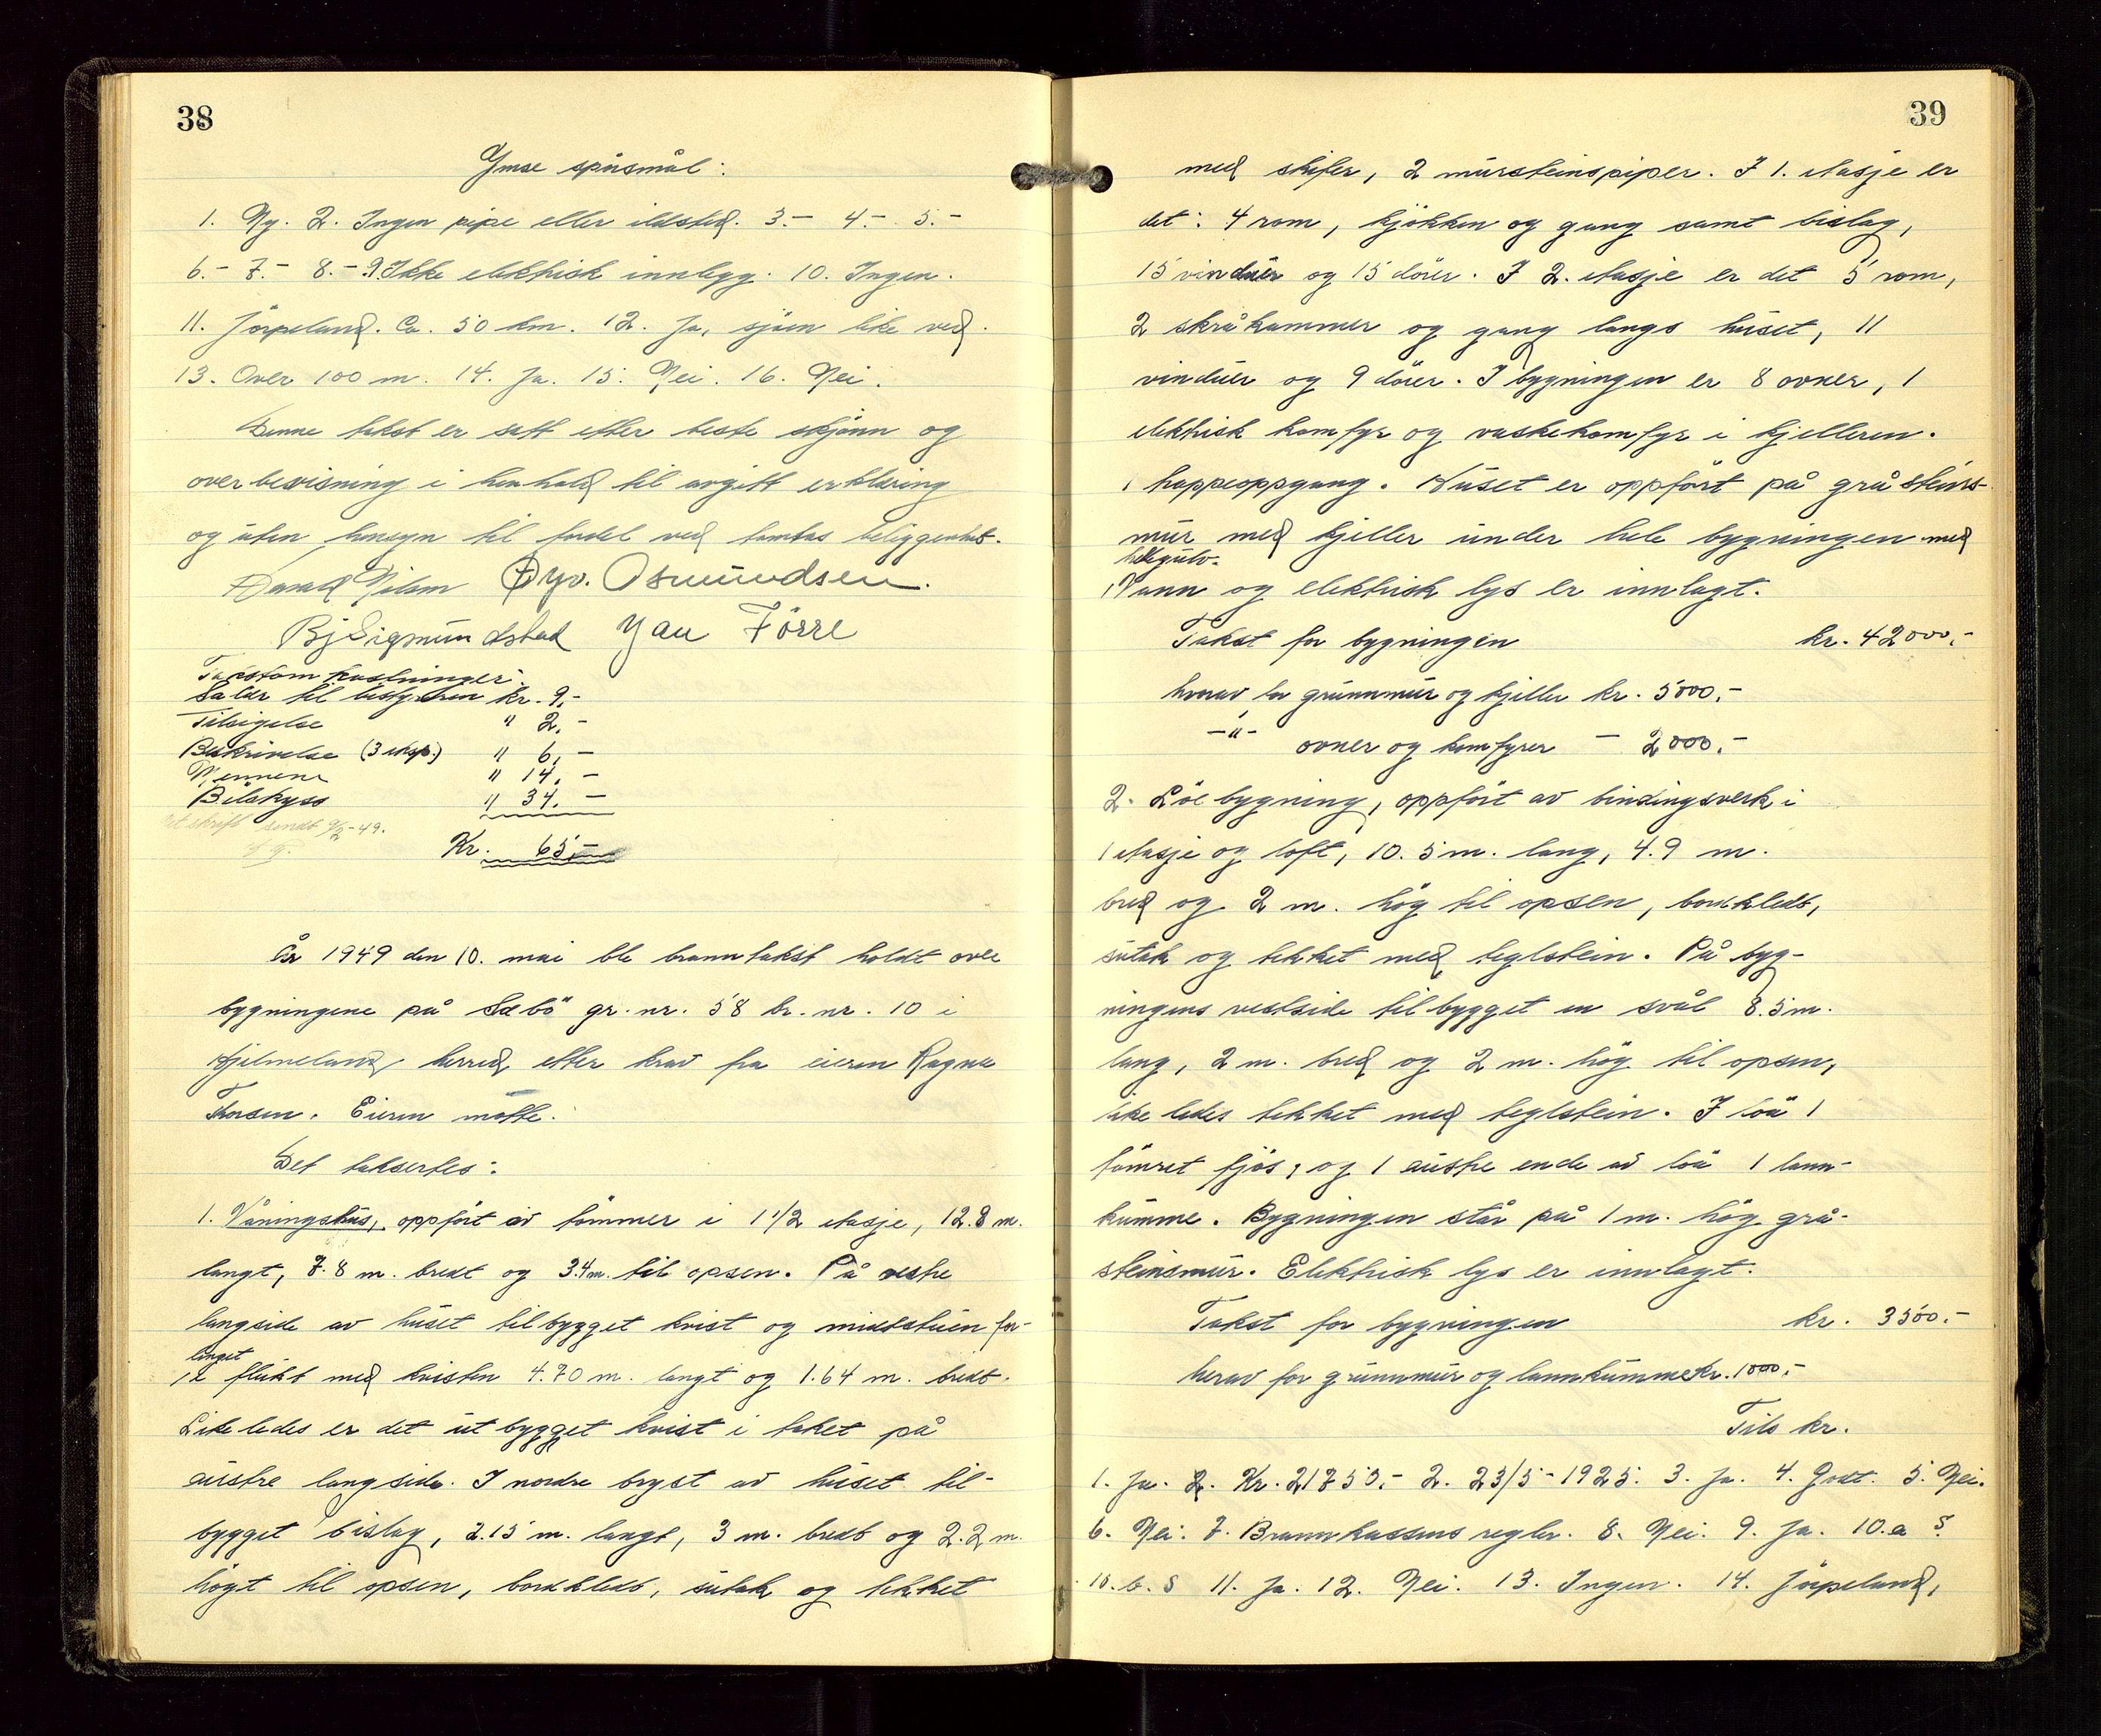 38
Ymse spörsmål:
1. Ny. 2. Ingen pipe eller ildsted. 3.- 4.- 5.-
6.- 7.- 8.- 9. Ikke elektrisk innlegg. 10. Ingen.
11. Jörpeland. Ca. 50 km. 12. Ja, sjöen like ved.
13. Over 100 m. 14. Ja. 15. Nei. 16. Nei.
Denne takst er satt etter beste skjönn og
overbevisning i henhold til avgitt erklæring
og uten hensyn til fordel ved tomtas beliggenhet.
Nilsen Öyv. Osmundsen.
Bj Sigmundstad Jau Förre
Takstomkostninger:
Salær til kr. 9,-
Tilsigelse " 2,-
Beskrivelse (3 eksp.) " 6,-
Mennene " 14,-
Bilskyss " 34,-
skrift sendt 9/5-49.
Kr. 65,-
År 1949 den 10. mai ble branntakst holdt over
bygningene på Sæbö gr. nr. 58 br. nr. 10 i
Hjelmeland herred etter krav fra eieren Ragna
Thorsen. Eieren mötte.
Det taksertes:
1. Våningshus, oppfört av tömmer i 1 1/2 etasje, 12.8 m.
langt, 7.8 m. bredt og 3.4 m. til opsen. På vestre
langside av huset tilbygget kvist og midtstuen for-
lenget
i flukt med kvisten 4.70 m. langt og 1.64 m. bredt.
Likeledes er det utbygget kvist i taket på
austre langside. I nordre bryst av huset til-
bygget bislag, 2.15 m. langt, 3 m. bredt og 2.2 m.
högt til opsen, bordkledt, sutak og tekket
39
med skifer, 2 mursteinspiper. I 1. etasje er
det: 4 rom, kjökken og gang samt bislag,
15 vinduer og 15 dörer. I 2. etasje er det 5 rom,
2 skråkammer og gang langs huset, 11
vinduer og 9 dörer. I bygningen er 8 ovner, 1
elektrisk komfyr og vaskekomfyr i kjelleren.
1 trappeoppgang. Huset er oppfört på gråsteins-
mur med kjeller under hele bygningen med
hellegulv.
Vann og elektrisk lys er innlagt.
Takst for bygningen kr. 42000.-
hvorav for grunnmur og kjeller kr. 5000.-
-"- ovner og komfyrer - 2000.-
2. Löebygning, oppfört av bindingsverk i
1 etasje og loft, 10.5 m. lang, 4.9 m.
bred og 2 m. hög til opsen, bordkledt,
sutak og tekket med teglstein. På byg-
ningens vestside tilbygget en svål 8.5 m.
lang, 2 m. bred og 2 m. hög til opsen,
likeledes tekket med teglstein. I löa 1
tömret fjös, og i austre ende av löa 1 lann-
kumme. Bygningen står på 1 m. hög grå-
steinsmur. Elektrisk lys er innlagt.
Takst for bygningen kr. 3500.-
herav for grunnmur og lannkumme kr. 1000.-
Tils kr.
1. Ja. 2. Kr. 21750.- 2. 23/5-1925. 3. Ja. 4. Godt. 5. Nei.
6. Nei. 7. Brannkassens regler. 8. Nei. 9. Ja. 10.a S.
10.b. S 11. Ja. 12. Nei. 13. Ingen. 14. Jörpeland,